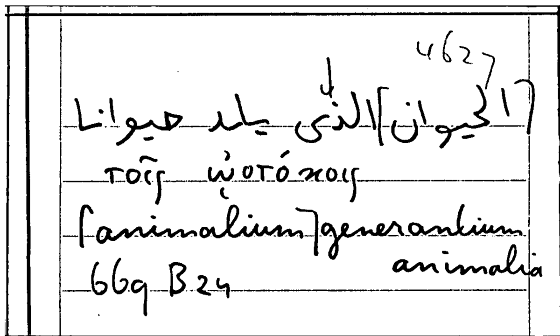 4627
[الحيوان] الذى يلد حيوانا
τοῖς ᾠοτόκοις
[animalium] generantium
animalia
669 B 24